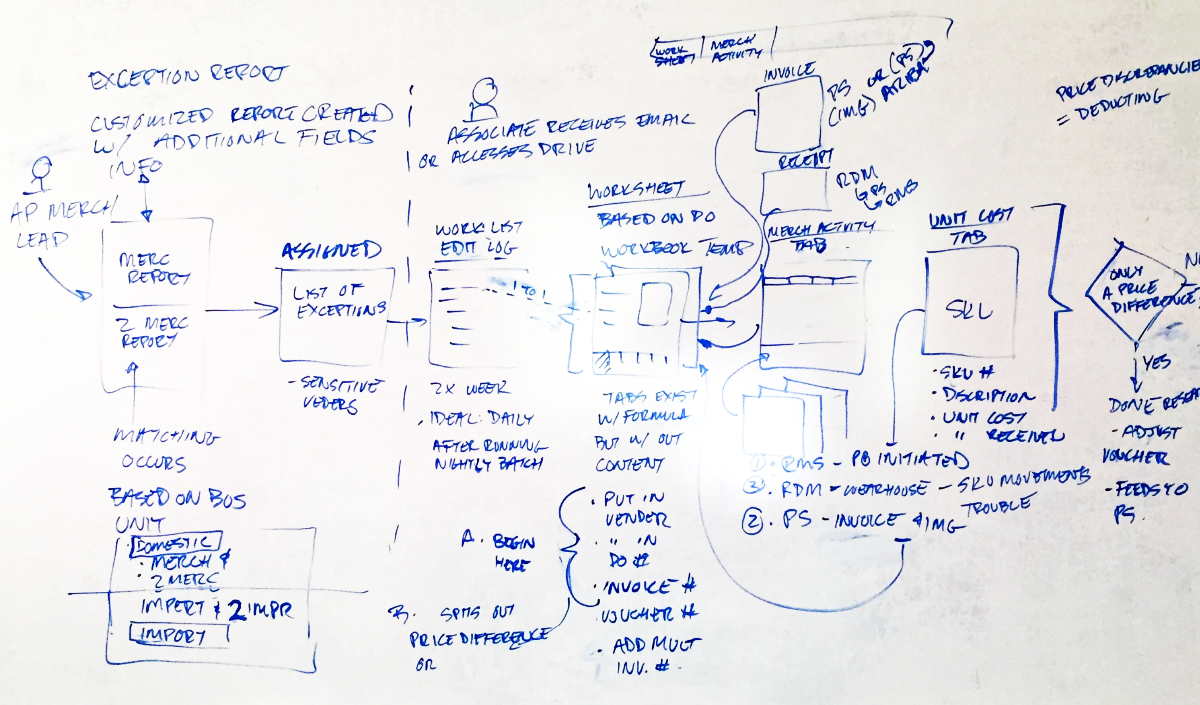 EXCEPTION REPORT
CUSTOMIZED REPORT CREATED
W/ ADDITIONAL FIELDS
INFO
AP MERCH
LEAD
MERC
REPORT
2 MERC
REPORT
MATCHING
OCCURS
BASED ON BUS
UNIT
DOMESTIC
• MERCH &
• 2 MERC
IMPERT & 2 IMPR
IMPORT
ASSIGNED
LIST OF
EXCEPTIONS
- SENSITIVE
VEDERS
ASSOCIATE RECEIVES EMAIL
OR ACCESSES DRIVE
WORK LIST
EDIT LOG
1 TO 1
2X WEEK
. IDEAL: DAILY
AFTER RUNNING
NIGHTLY BATCH
WORKSHEET
BASED ON DO
WORKBOOK TEMP
TABS EXIST
W/ FORMULA
BUT W/ OUT
CONTENT
A. BEGIN
HERE
• PUT IN
VENDER
• " IN
DO #
• INVOICE #
VOUCHER #
• ADD MULT
INV. #
B. SPITS OUT
PRICE DIFFERENCE
OR
WORK
SHEET
MERCH
ACTIVITY
INVOICE
PS OR (PS)
(IMG) ARIBA
RECEIPT
RDM
PS
RMS
MERCH ACTIVITY
TAB
UNIT COST
TAB
SKU
• SKU #
• DSCRIPTION
• UNIT COST
• " RECEIVED
① . RMS - PO INITIATED
③ . RDM - WEARHOUSE - SKU MOVEMENTS
TROUBLE
② . PS - INVOICE & IMG
PRICE DISCREPANCIE
= DEDUCTING
ONLY
A PRICE
DIFFERENCE
YES
DONE RESEAR
- ADJUST
VOUCHER
- FEEDS TO
PS.